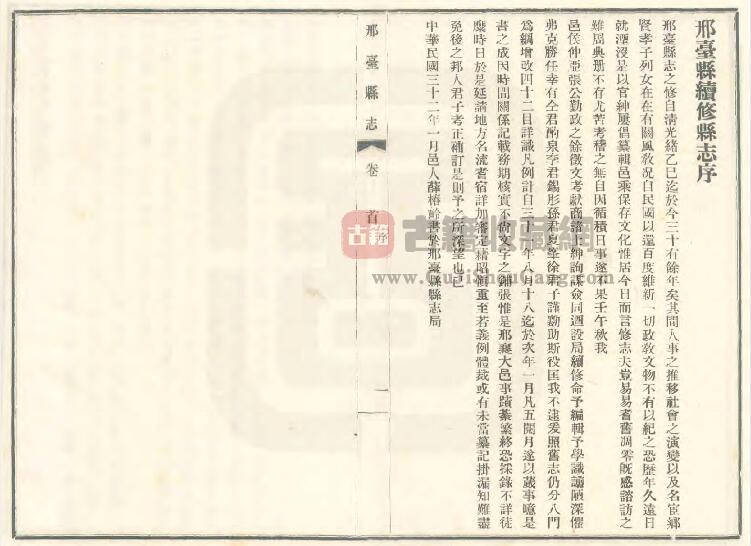 邢臺縣續修縣志序
邢臺縣志之修自清光緒乙巳迄於今三十有餘年矣其間人事之推移社會之演變以及名宦鄉
賢孝子列女在在有關風敎況自民國以還百度維新一切政敎文物不有以紀之恐歷年久遠日
就湮沒是以官紳屢倡纂輯邑乘保存文化惟居今日而言修志夫豈易易耆舊凋零旣感諮訪之
難周典册不存尤苦考稽之無自因循積日事遂不果壬午秋我
邑侯仲亞張公勤政之餘徵文考獻商諸邑紳詢謀僉同遹設局續修命予編輯予學識譾陋深懼
弗克勝任幸有仝君酌泉李君錫彤孫君夏峯徐君子謹勷助斯役匡我不逮爰照舊志仍分八門
爲綱增改四十二目詳議凡例計自三十一年八月十八迄於次年一月凡五閱月遂以蕆事噫是
書之成因時間關係記載務期核實不尙文字之鋪張惟是邢襄大邑事蹟綦繁終恐採錄不詳徒
糜時日於是延請地方名流耆宿詳加審定藉昭愼重至若義例體裁或有未當纂記掛漏知難盡
免後之邦人君子考正補訂是則予之所深望也已
中華民國三十二年一月邑人薛椿齡書於邢臺縣縣志局
邢臺縣志
卷首
序
一
古籍
古籍收藏網
www.GuJiShouCang.com